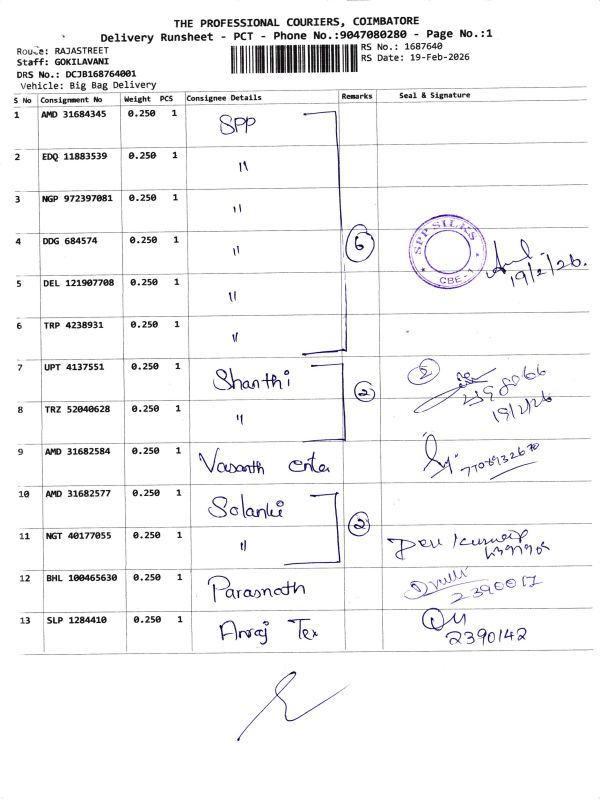 THE PROFESSIONAL COURIERS, COIMBATORE
Delivery Runsheet - PCT - Phone No.:9047080280 - Page No.:1
Route: RAJASTREET
RS No.: 1687640
Staff: GOKILAVANI
RS Date: 19-Feb-2026
DRS No.: DCJB168764001
Vehicle: Big Bag Delivery
S No Consignment No Weight PCS Consignee Details Remarks Seal & Signature
1 AMD 31684345 0.250 1 SPP
2 EDQ 11883539 0.250 1 "
3 NGP 972397081 0.250 1 "
4 DDG 684574 0.250 1 " 6 SPP SILKS CBE-1 19/2/26.
5 DEL 121907708 0.250 1 "
6 TRP 4238931 0.250 1 "
7 UPT 4137551 0.250 1 Shanthi 2 2
8 TRZ 52040628 0.250 1 " 19/2/26
9 AMD 31682584 0.250 1 Vasanth
10 AMD 31682577 0.250 1 Solanki 2
11 NGT 40177055 0.250 1 "
12 BHL 100465630 0.250 1 Parasnath 2390017
13 SLP 1284410 0.250 1 Anraj Tex 2390142